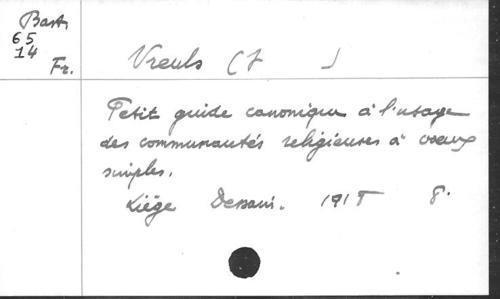 Bast.
65
14
Fr.
Vreuls (J )
Petit guide canonique à l'usage
des communautés religieuses à vœux
simples.
Liége Dessain. 191 8.